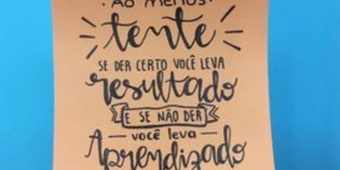 Ao menos
tente
SE DER CERTO VOCÊ LEVA
resultado
E SE NÃO DER
VOCÊ leva
Aprendizado